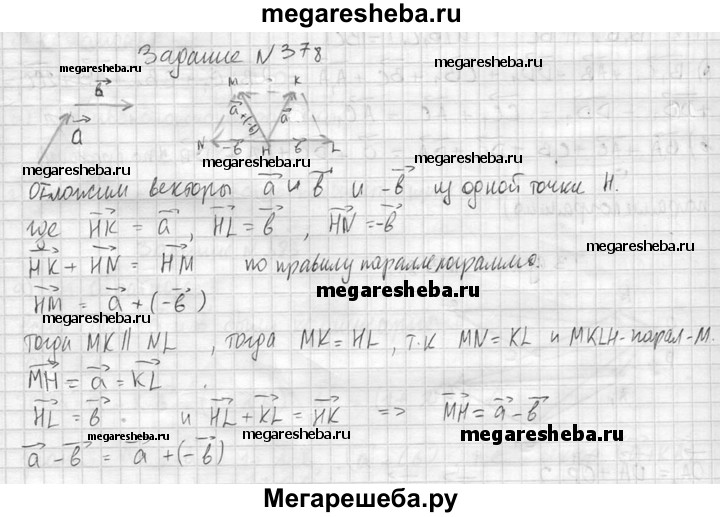 megaresheba.ru
Задание N 378
megaresheba.ru
megaresheba.ru
M K
b
a a+(-b) a
N -b H b L
megaresheba.ru
megaresheba.ru
Отложим векторы a и b и -b из одной точки H.
где HK = a, HL = b, HN = -b
megaresheba.ru
HK + HN = HM по правилу параллелограмма.
HM = a + (-b)
megaresheba.ru
megaresheba.ru
тогда MK || NL, тогда MK = HL, т.к MN = KL и MKLH-парал-м.
MH = a = KL
megaresheba.ru
HL = b. и HL + KL = HK => MH = a - b
megaresheba.ru
megaresheba.ru
a - b = a + (-b)
Мегарешеба.ру